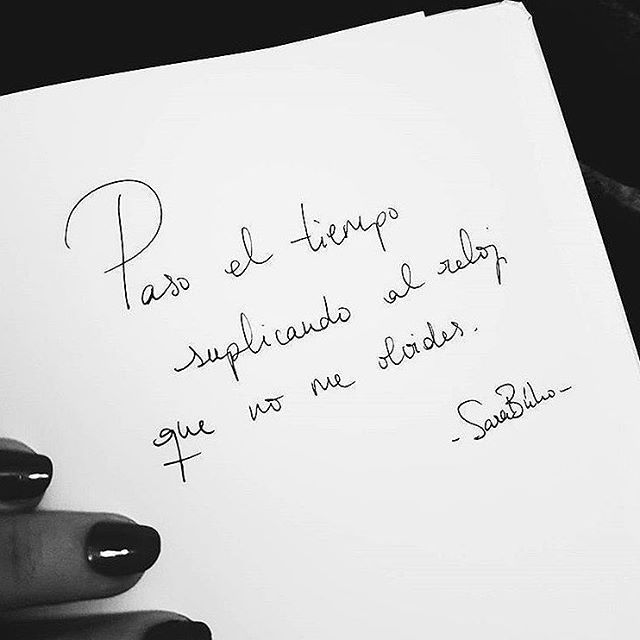 Paso el tiempo
suplicando al reloj
que no me olvides.
-SaraBúho-